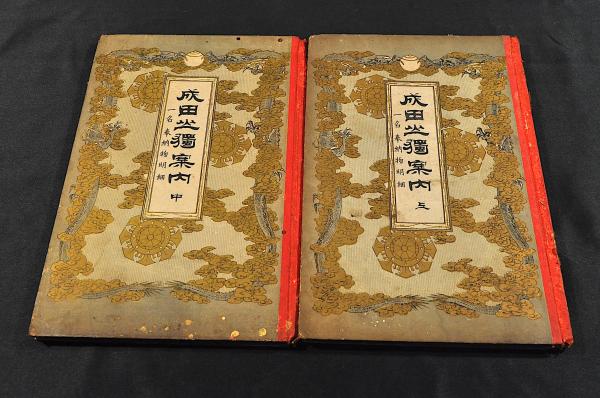 成田山獨案内
一名 奉納物明細
中
成田山獨案内
一名 奉納物明細
上